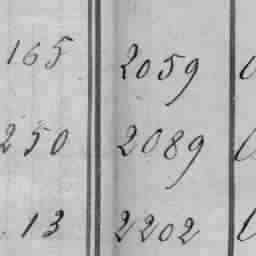 165 2059
250 2089
13 2202